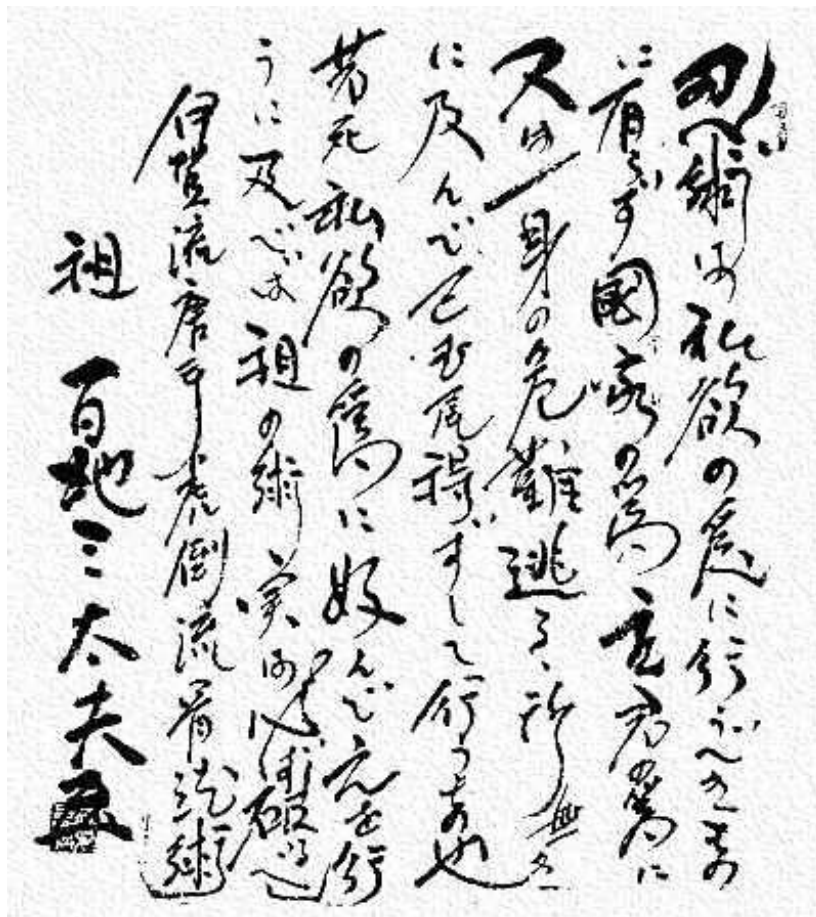 忍術は私欲の為に行うべきもの
に有らず國家の為主君の為に
又は一身の危難逃るゝ所無き
に及んで已むを得ずして行うもの也
若死私欲の為に好んで之を行
うに及べば祖の術実は必ず破るべし
伊賀流唐手虎倒流骨法術
祖 百地三太夫